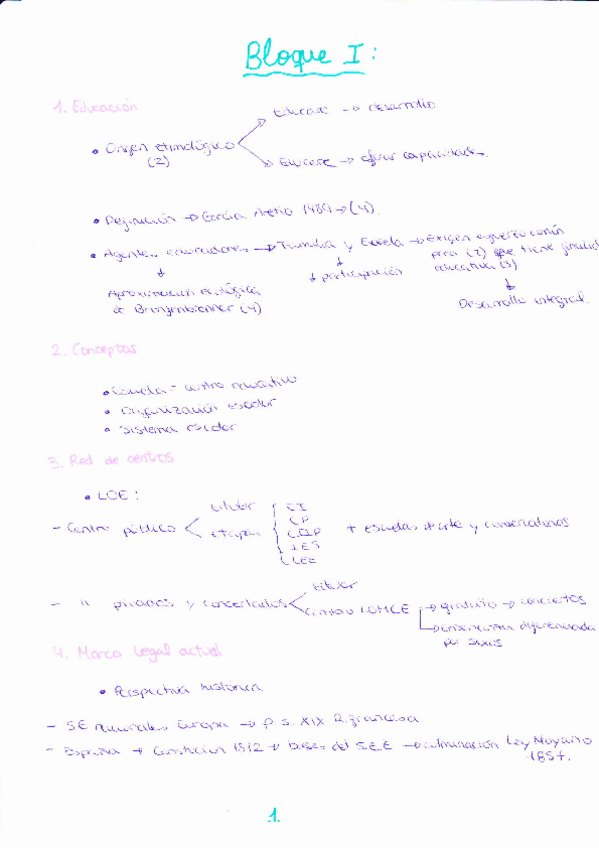 Bloque I:
1. Educación
Educare → desarrollo
• Origen etimológico
(2)
Educere → capacidades.
• Definición → García Aretio 1989 → (4)
• Agentes educadores → Familia y Escuela → Exigen esfuerzo común
para (2) que tiene finalidad
↓ participación
educativa (3)
Aproximación ecológica
de Bronfenbrenner (4)
Desarrollo integral.
2. Conceptos
• Escuela = centro educativo
• Organización escolar
• Sistema escolar
3. Red de centros
• LOE:
titular
- Centro público
etapas
EI
CP
CEIP
IES
CEE
+ escuelas arte y conservatorios
titular
- " privados y concertados
LOMCE → gratuito → conciertos
→ diferenciada
por sexos
4. Marco Legal actual
• Perspectiva histórica
- SE nacionales Europa → p. s. XIX R. francesa
- España → Constitución 1812 → bases del S.E.E → culminación Ley Moyano
1857.
1.